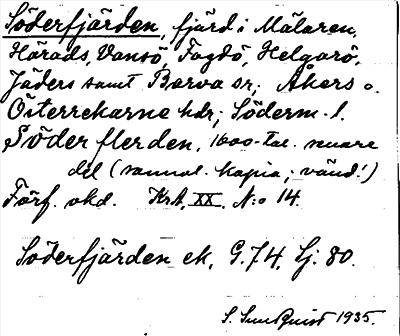 Söderfjärden, fjärd i Mälaren,
Härads, Vansö, Fogdö, Helgarö,
Jäders samt Barva sr; Åkers o.
Österrekarne hdr; Söderm. l.
Söder flerden, 1600-tal. senare
del (sannol. kopia; vänd!)
Förf. okd. Krt. XX. N:o 14.
Söderfjärden ek. G. 74, Sj. 80.
S. Sundquist 1935.